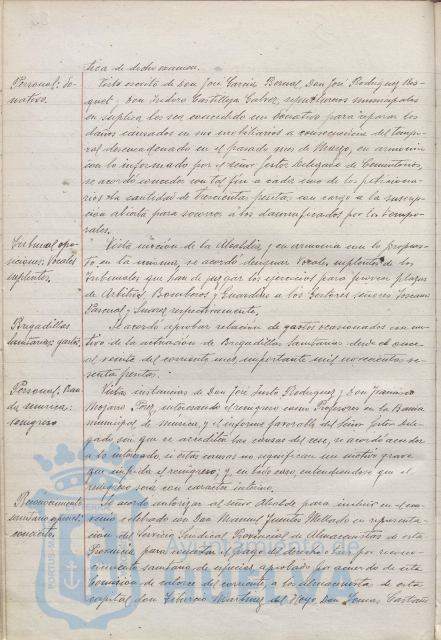 tica de dicho examen.
Personal: Do-
nativo.
Visto escrito de Don José García Bernal, Don José Rodríguez
y Don Isidoro Castilleja Galvez, sepultureros municipales
en súplica les sea concedido un donativo para reparar los
daños causados en sus mobiliarios a consecuencia del tempo-
ral desencadenado en el pasado mes de Marzo, en armonía
con lo informado por el señor Gestor Delegado de Cementerios,
se acordó conceder con tal fin a cada uno de los peticiona-
rios la cantidad de trescientas pesetas con cargo a la suscrip-
ción abierta para socorros a los damnificados por los tempo-
rales.
Tribunal opo-
siciones: Vocales
suplentes.
Vista moción de la Alcaldía y en armonía con lo propues-
to en la misma, se acordó designar Vocales suplentes de los
Tribunales que han de juzgar los ejercicios para proveer plazas
de Arbitrios, Bomberos y Guardias a los Gestores señores
Pascual y Suarez respectivamente.
Brigadillas
sanitarias: gastos.
Se acordó aprobar relación de gastos ocasionados con mo-
tivo de la actuación de Brigadillas Sanitarias desde el once
al veinte del corriente mes, importante mil novecientas se-
senta pesetas.
Personal, Ban-
da musica:
reingreso
Vistas instancias de Don José Justo Rodriguez y Don Francisco
Mojarro interesando el reingreso como Profesores en la Banda
municipal de musica, y el informe favorable del señor Gestor Dele-
gado sin que se acrediten las causas del cese, se acordó acceder
a lo interesado, si estas causas no significan un motivo grave
que impida el reingreso; y, en todo caso, entendiendose que el
reingreso será con caracter interino.
Reconocimiento
sanitario especies:
concierto.
Se acordó autorizar al señor Alcalde para incluir en el con-
venio celebrado con Don Manuel Fuentes Mellado en representa-
ción del Servicio Sindical Provincial de Almacenistas de esta
Provincia para concertar el pago del derecho tasa por recono-
cimiento sanitario de especies, aprobado por acuerdo de esta
Comisión de catorce del corriente, a los Almacenistas de esta
capital don Tiburcio Martinez del Hoyo, Don Tomas Castaño